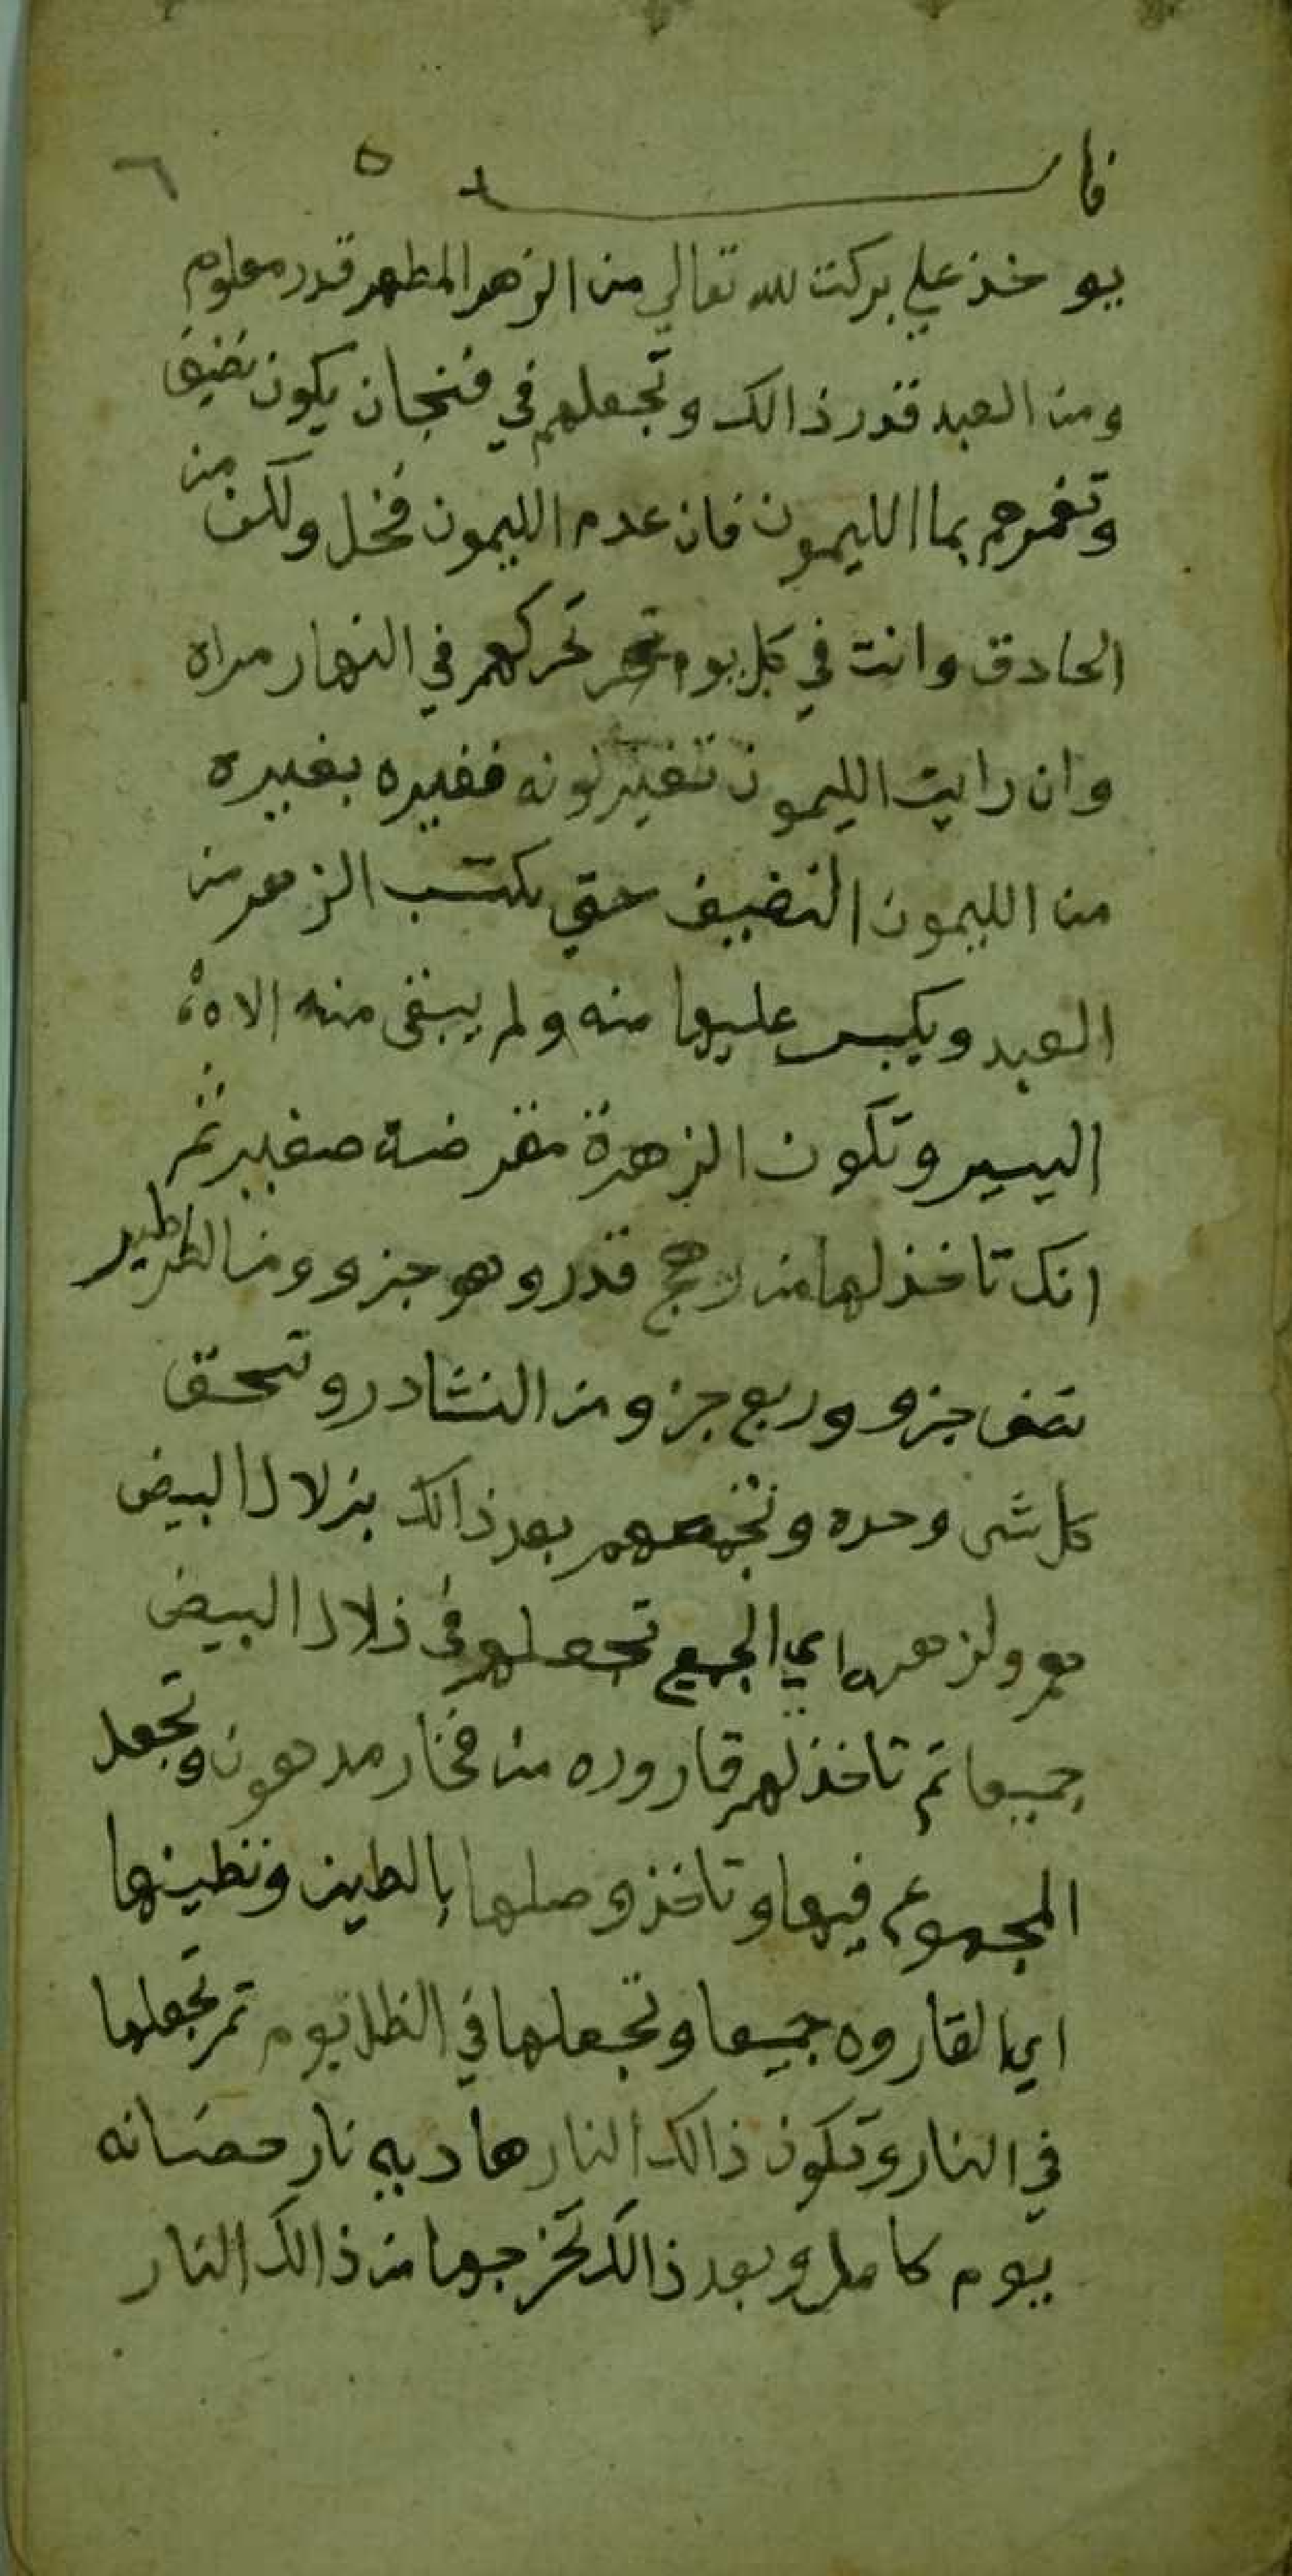 فايـــــــــدة ٦
يوخذ علي بركت لله تعالي من الزهر المطهر قدر معلوم
ومن العبد قدر ذالك وتجعلهم في فنجان يكون نضيف
وتغمرهم بما الليمون فان عدم الليمون فخل ولكن من
الحادق وانت في كل يوم تحركهم في النهار مراة
وان رايت الليمون تتغير لونه فغيره بغيره
من الليمون النضيف حتي يكتسب الزهر من
العبد ويكبس عليها منه ولم يبقى منه الا
اليسير وتكون الزهرة مقرضة صغير ثم
انك تاخذ لها من قدر وهو جزو ومن الطرطير
نصف جزو وربع جزو من النشادر وتسحق
كل شى وحده وتجمعهم بعد ذالك بزلال البيض
اي الجميع تجعلهم في زلال البيض
جميعا ثم تاخذ لهم قاروره من فخار مدهون وتجعل
المجموع فيها وتاخذ وصلها بالطين وتطينها
اي القاروه جميعا وتجعلها في الظل يوم ثم تجعلها
في النار وتكون ذالك النار هاديه نار حضانه
يوم كامل وبعد ذالك تخرجها من ذالك النار